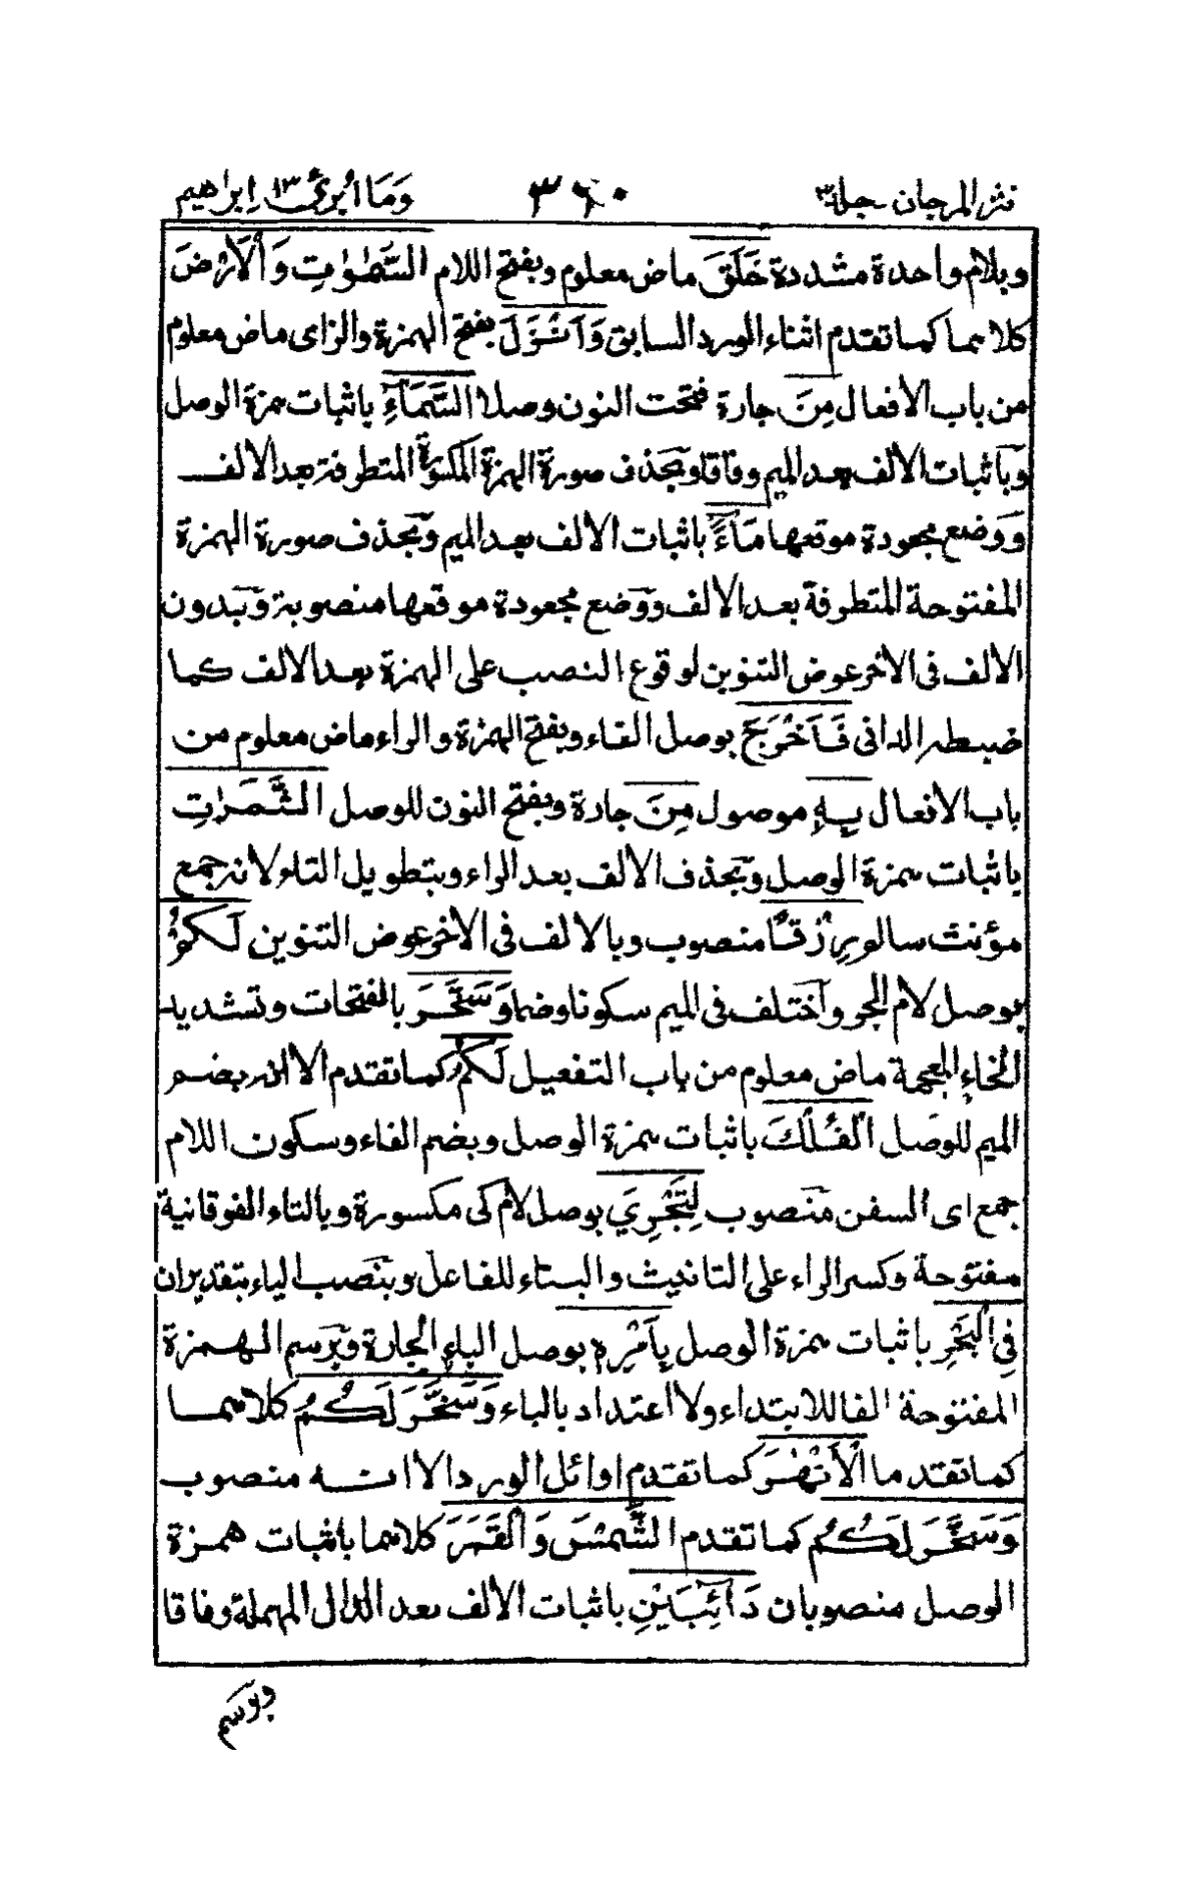 نثر المرجان جلد ٣ ٣٦٠ وَمَا اُبَرِّئُ ١٣ اِبراهيم
وبلام واحدة مشددة خَلَقَ ماض معلوم وبفتح اللام السَّمٰوٰتِ وَالْاَرْضَ
كلاهما كما تقدم اثناء الورد السابق وَاَنْزَلَ بفتح الهمزة والزاى ماض معلوم
من باب الافعال مِنَ جارة فتحت النون وصلا السَّمَآءِ باثبات همزة الوصل
وباثبات الالف بعد الميم وفاقا وبحذف صورة الهمزة المكسورة المتطرفة بعد الالف
ووضع مجعودة موقعها مَآءً باثبات الالف بعد الميم وبحذف صورة الهمزة
المفتوحة المتطرفة بعد الالف ووضع مجعودة موقعها منصوبة وبدون
الالف فى الاخر عوض التنوين لوقوع النصب على الهمزة بعد الالف كما
ضبطه الدانى فَاَخْرَجَ بوصل الفاء وبفتح الهمزة والراء ماض معلوم من
باب الافعال بِهٖ موصول مِنَ جارة وبفتح النون للوصل الثَّمَرٰتِ
باثبات همزة الوصل وبحذف الالف بعد الراء وبتطويل التاء لانه جمع
مؤنث سالم رِزْقًا منصوب وبالالف فى الاخر عوض التنوين لَكُمْ
بوصل لام الجر واختلف فى الميم سكونا وضما وَسَخَّرَ بالفتحات وتشديد
الخاء المعجمة ماض معلوم من باب التفعيل لَكُمُ كما تقدم الا انه بضم
الميم للوصل الْفُلْكَ باثبات همزة الوصل وبضم الفاء وسكون اللام
جمع اى السفن منصوب لِتَجْرِيَ بوصل لام كى مكسورة وبالتاء الفوقانية
مفتوحة وكسر الراء على التانيث والبناء للفاعل وبنصب الياء بتقدير ان
فِى الْبَحْرِ باثبات همزة الوصل بِاَمْرِهٖ بوصل الباء الجارة وبرسم الهمزة
المفتوحة الفا للابتداء ولا اعتداد بالباء وَسَخَّرَ لَكُمُ كلاهما
كما تقدما الْاَنْهٰرَ كما تقدم اوائل الورد الا انه منصوب
وَسَخَّرَ لَكُمُ كما تقدم الشَّمْسَ وَالْقَمَرَ كلاهما باثبات همزة
الوصل منصوبان دَآئِبَيْنِ باثبات الالف بعد الدال المهملة وفاقا
وبرسم